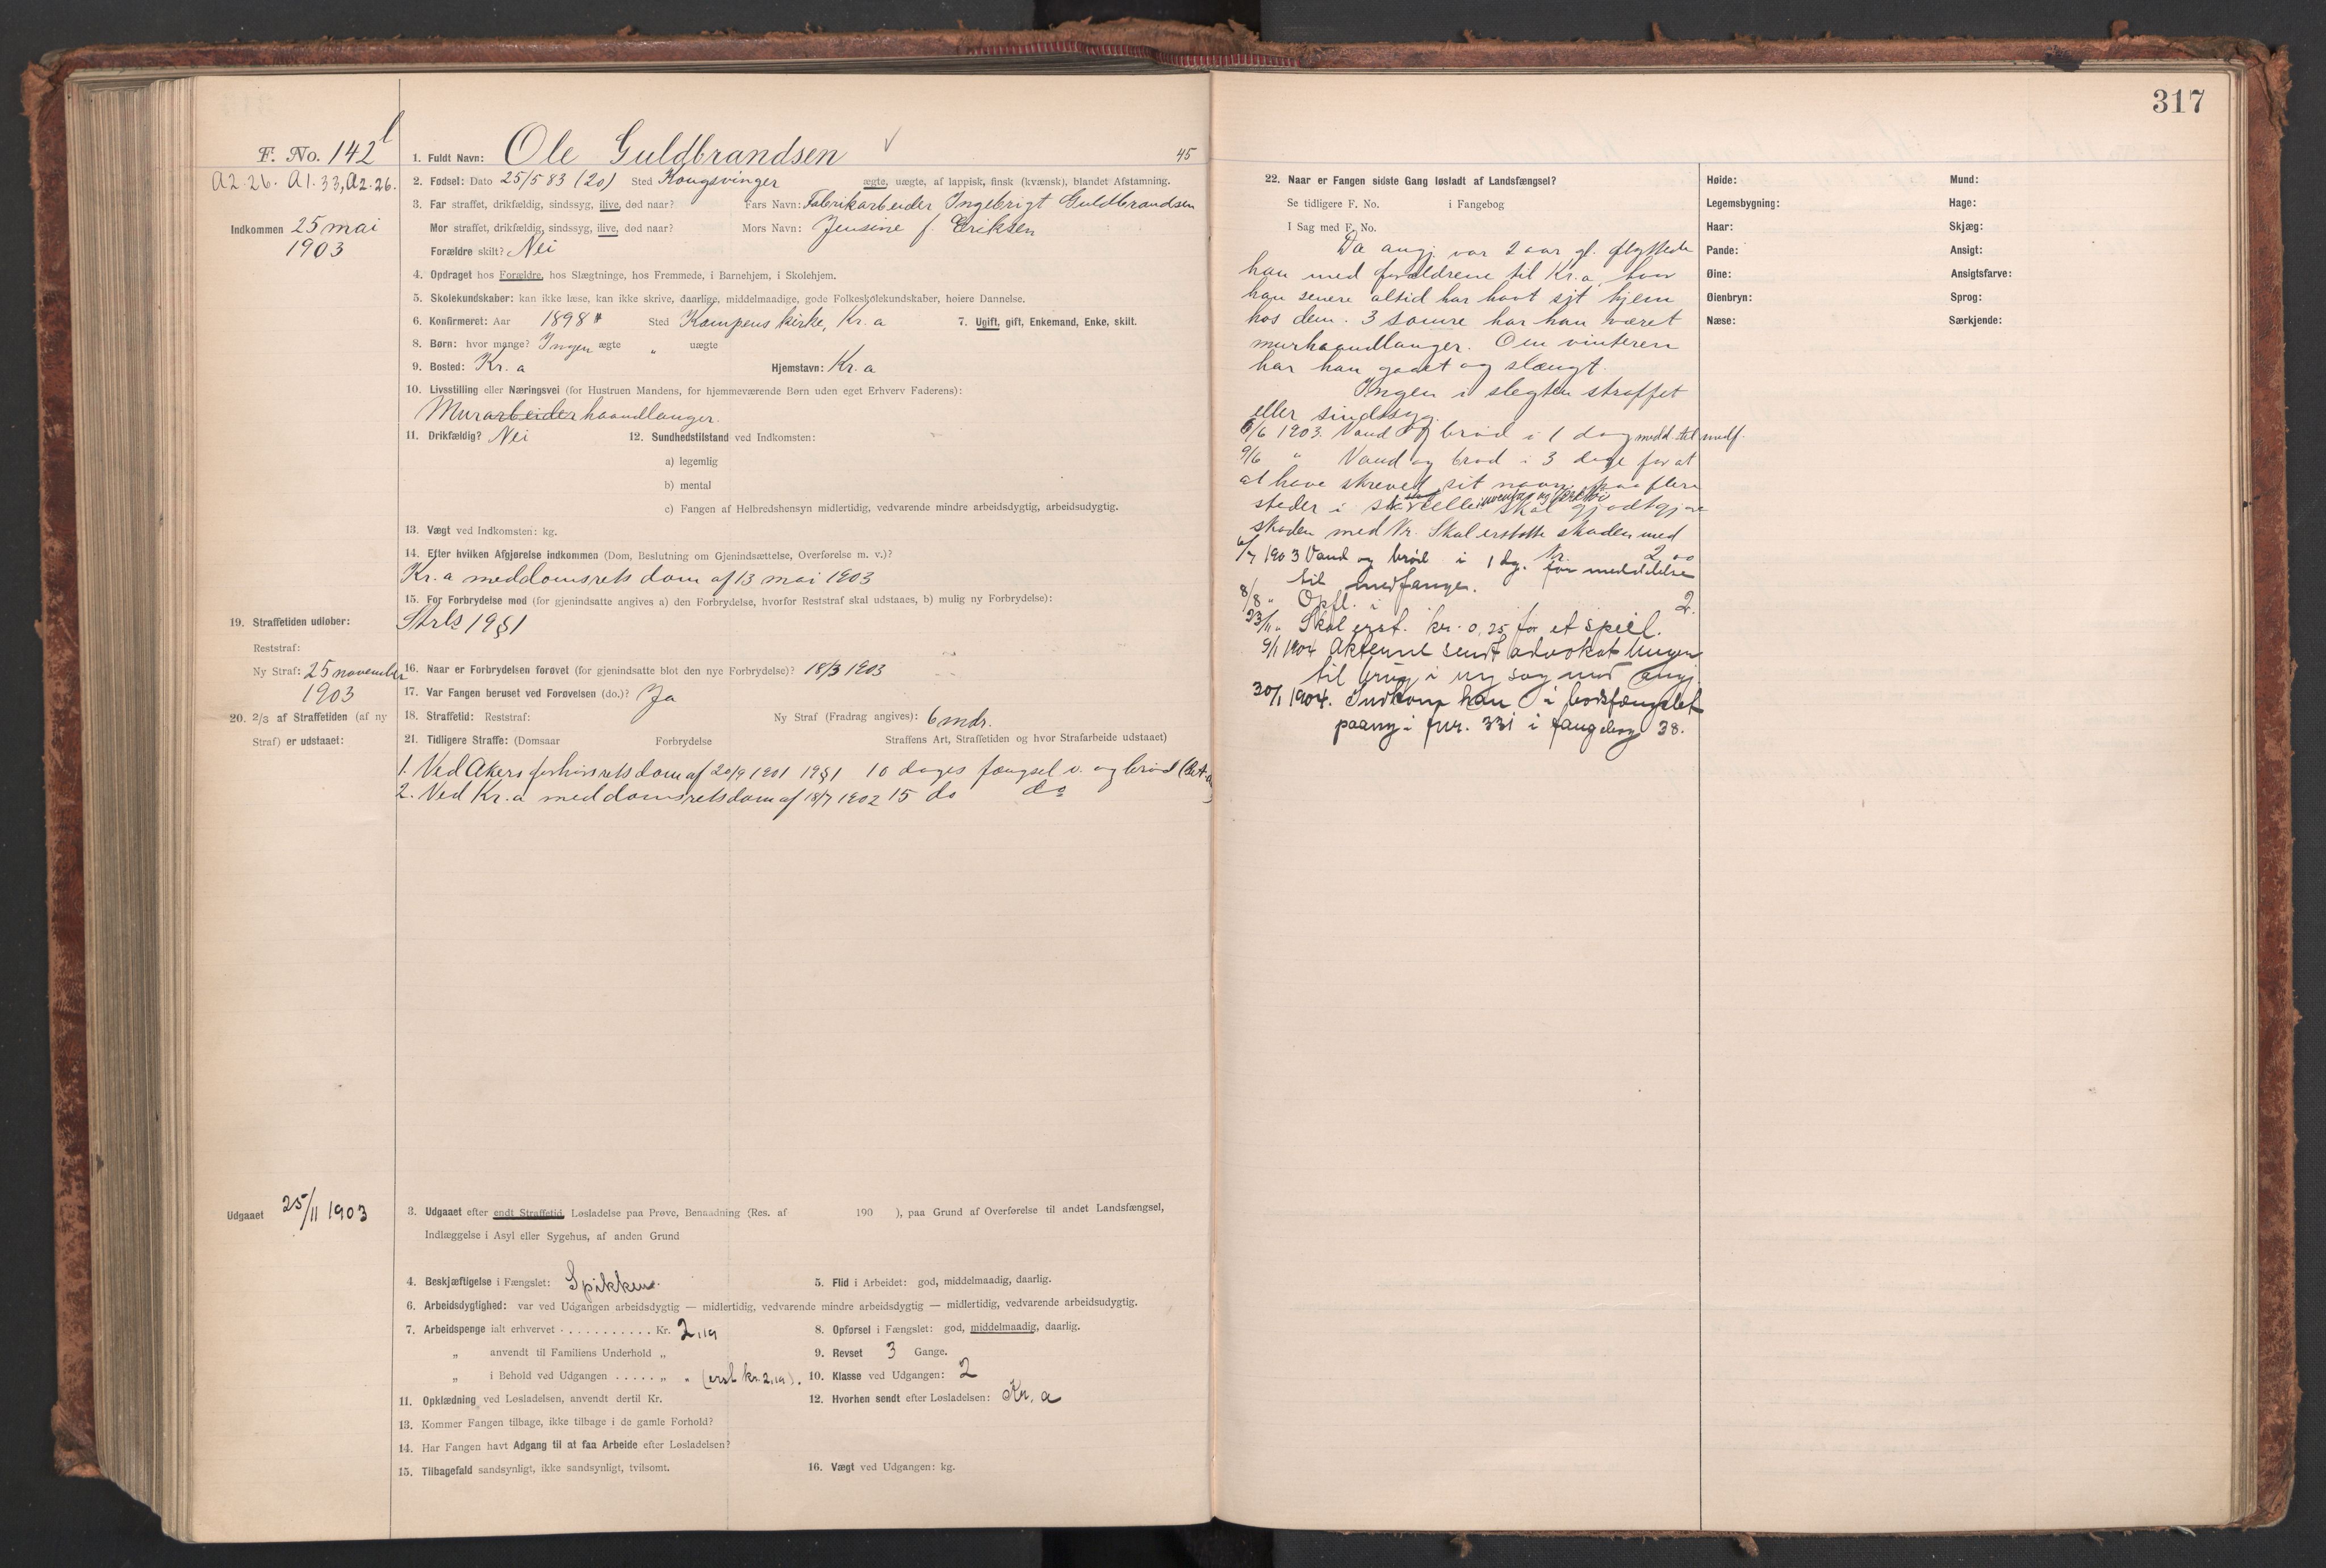 317
F. No. 142 l
A2.26. A1.33, A2.26.
Indkommen 25 mai
1903
1. Fuldt Navn: Ole Guldbrandsen 45
2. Fødsel: Dato 25/5 83 (20) Sted Kongsvinger ægte, uægte, af lappisk, finsk (kvænsk), blandet Afstamning.
3. Far straffet, drikfældig, sindssyg, ilive, død naar? Fars Navn: Fabrikarbeider Ingebrigt Guldbrandsen
Mor straffet, drikfældig, sindssyg, ilive, død naar? Mors Navn: Jensine f. Eriksen
Forældre skilt? Nei
4. Opdraget hos Forældre, hos Slægtninge, hos Fremmede, i Barnehjem, i Skolehjem.
5. Skolekundskaber: kan ikke læse, kan ikke skrive, daarlige, middelmaadige, gode Folkeskolekundskaber, høiere Dannelse.
6. Konfirmeret: Aar 1898 Sted Kampens kirke, Kr.a 7. Ugift, gift, Enkemand, Enke, skilt.
8. Børn: hvor mange? Ingen ægte " uægte
9. Bosted: Kr. a Hjemstavn: Kr. a
10. Livsstilling eller Næringsvei (for Hustruen Mandens, for hjemmeværende Børn uden eget Erhverv Faderens):
Murarbeider haandlanger.
11. Drikfældig? Nei 12. Sundhedstilstand ved Indkomsten:
a) legemlig
b) mental
c) Fangen af Helbredshensyn midlertidig, vedvarende mindre arbeidsdygtig, arbeidsudygtig.
13. Vægt ved Indkomsten: kg.
14. Efter hvilken Afgjørelse indkommen (Dom, Beslutning om Gjenindsættelse, Overførelse m. v.)?
Kr. a meddomsrets dom af 13 mai 1903
15. For Forbrydelse mod (for gjenindsatte angives a) den Forbrydelse, hvorfor Reststraf skal udstaaes, b) mulig ny Forbrydelse):
Strl 19§1
19. Straffetiden udløber:
Reststraf:
Ny Straf: 25 november
1903
16. Naar er Forbrydelsen forøvet (for gjenindsatte blot den nye Forbrydelse)? 18/3 1903
17. Var Fangen beruset ved Forøvelsen (do.)? Ja
20. 2/3 af Straffetiden (af ny
Straf) er udstaaet:
18. Straffetid: Reststraf: Ny Straf (Fradrag angives): 6 mdr.
21. Tidligere Straffe: (Domsaar Forbrydelse Straffens Art, Straffetiden og hvor Strafarbeide udstaaet)
1. Ved Akers forhørsrets dom af 20/9 1901 19§1 10 dages fængsel v. og brød
2. Ved Kr. a meddomsrets dom af 18/7 1902 15 do do
Udgaaet 25/11 1903
3. Udgaaet efter endt Straffetid, Løsladelse paa Prøve, Benaadning (Res. af 190 ), paa Grund af Overførelse til andet Landsfængsel,
Indlæggelse i Asyl eller Sygehus, af anden Grund
4. Beskjæftigelse i Fængslet: Spikken. 5. Flid i Arbeidet: god, middelmaadig, daarlig.
6. Arbeidsdygtighed: var ved Udgangen arbeidsdygtig — midlertidig, vedvarende mindre arbeidsdygtig — midlertidig, vedvarende arbeidsudygtig.
7. Arbeidspenge ialt erhvervet . . . . . . . . . . . Kr. 2,19 8. Opførsel i Fængslet: god, middelmaadig, daarlig.
" anvendt til Familiens Underhold " 9. Revset 3 Gange.
" i Behold ved Udgangen . . . . . " " (erst. kr. 2,19). 10. Klasse ved Udgangen: 2
11. Opklædning ved Løsladelsen, anvendt dertil Kr. 12. Hvorhen sendt efter Løsladelsen: Kr. a
13. Kommer Fangen tilbage, ikke tilbage i de gamle Forhold?
14. Har Fangen havt Adgang til at faa Arbeide efter Løsladelsen?
15. Tilbagefald sandsynligt, ikke sandsynligt, tvilsomt. 16. Vægt ved Udgangen: kg.
22. Naar er Fangen sidste Gang løsladt af Landsfængsel?
Se tidligere F. No. i Fangebog
I Sag med F. No.
Da angj. var 2 aar gl. flyttede
han med forældrene til Kr.a, hvor
han senere altid har havt sit hjem
hos dem. 3 somre har han været
murhaandlanger. Om vinteren
har han gaaet og slængt.
Ingen i slegten straffet
eller sindssyg.
6/6 1903. Vand og brød i 1 dag medd. til medf.
9/6 " Vand og brød i 3 dage for at
at have skrevet sit navn paa flere
steder i cellen inventar og værktøi skal godtgjøre
skaden med Kr. Skal erstatte skaden med
Kr. 2,00
6/7 1903 Vand og brød i 1 dg. for meddelelse
til medfange.
8/8 " Opfl. i 2.
23/11 " Skal erst. kr. 0,25 for et speil.
9/1 1904 Akterne sendt advokat
til brug i ny sag mod angj.
30/1 1904. Indkom han i bodsfængslet
paany i fnr. 331 i fangebog 38.
Høide: Mund:
Legemsbygning: Hage:
Haar: Skjæg:
Pande: Ansigt:
Øine: Ansigtsfarve:
Øienbryn: Sprog:
Næse: Særkjende: